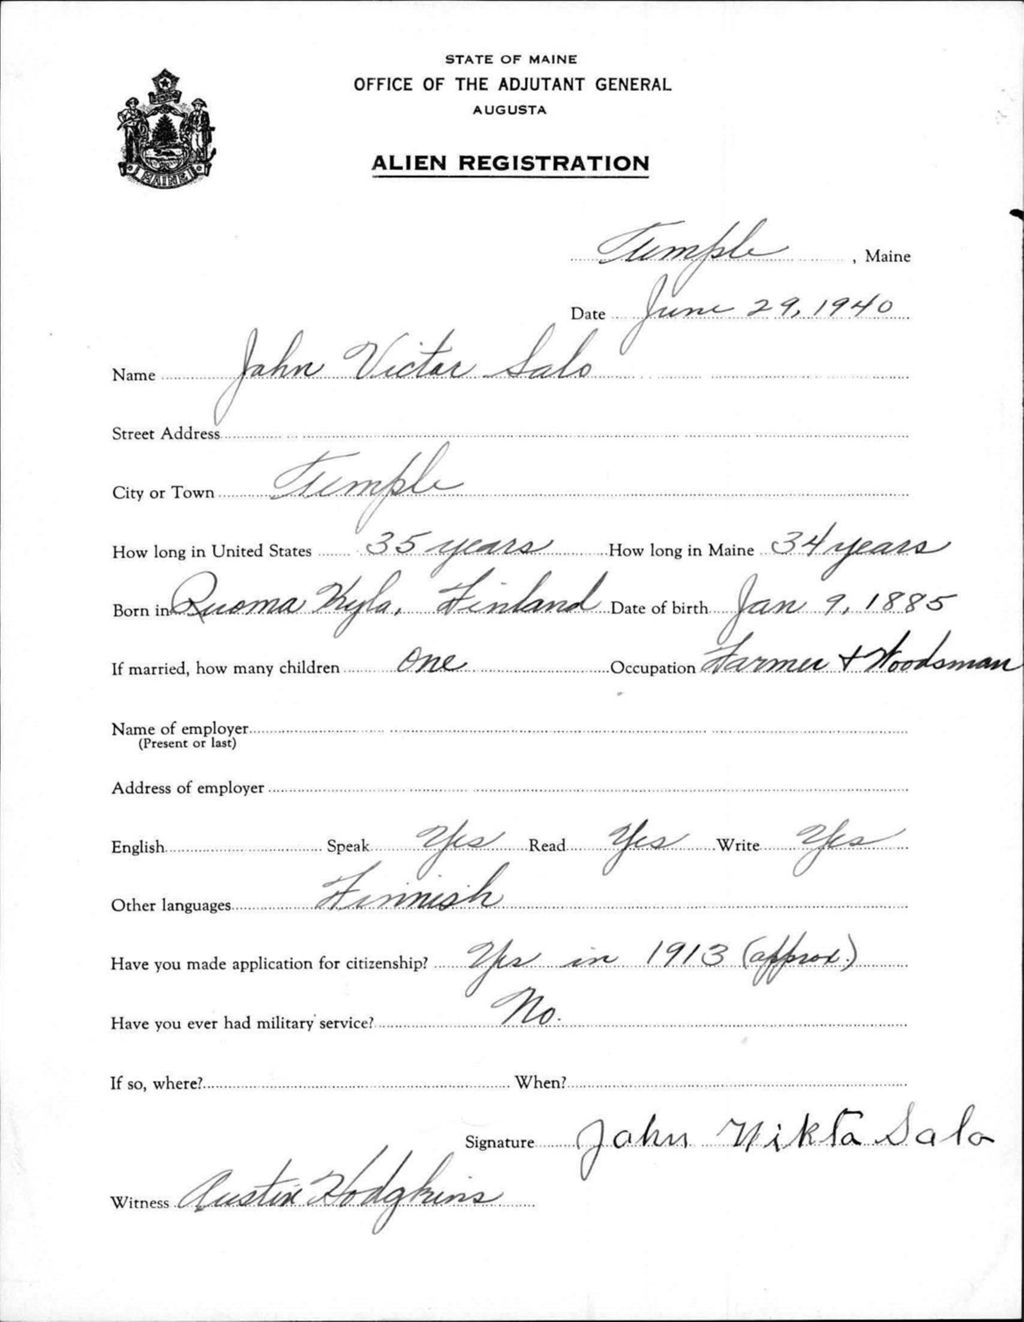 STATE OF MAINE
OFFICE OF THE ADJUTANT GENERAL
AUGUSTA
MAINE
ALIEN REGISTRATION
Temple, Maine
Date June 29, 1940
Name John Victor Salo
Street Address
City or Town Temple
How long in United States 35 years How long in Maine 34 years
Born in Ruoma Kyla, Finland Date of birth Jan 9, 1885
If married, how many children One Occupation Farmer + Woodsman
Name of employer
(Present or last)
Address of employer
English Speak Yes Read Yes Write Yes
Other languages Finnish
Have you made application for citizenship? Yes in 1913 (approx.)
Have you ever had military service? No.
If so, where? When?
Signature John Nikta Salo
Witness Austin Hodgkins